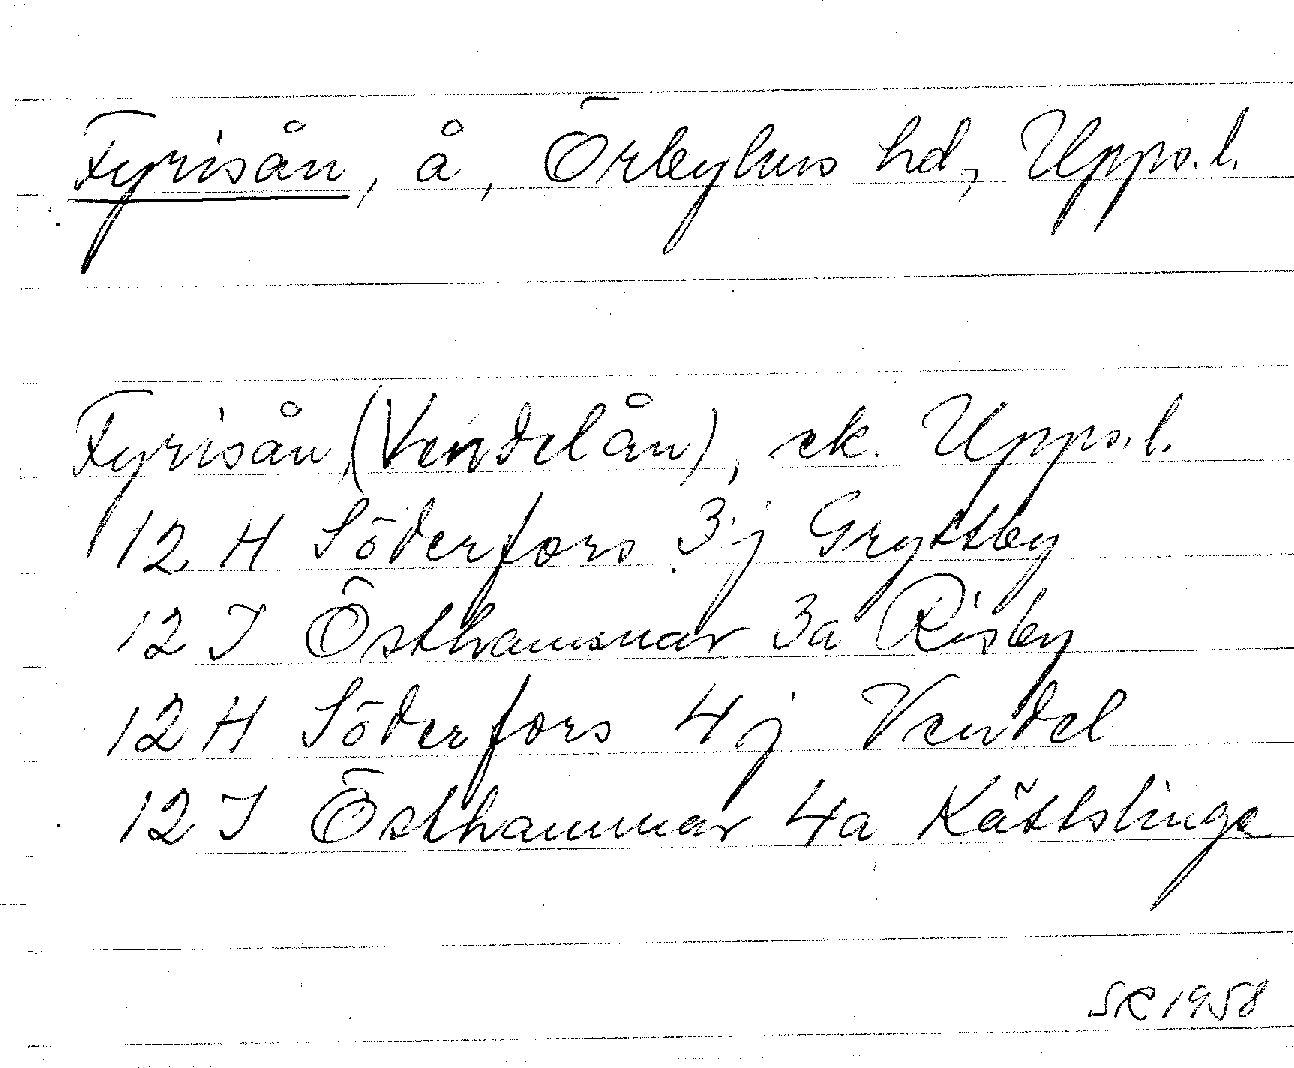 Fyrisån, å, Örbyhus hd, Upps.l.
Fyrisån (Vendelån), ek. Upps.l.
12 H Söderfors 3j Gryttby
12 I Östhammar 3a Risby
12 H Söderfors 4j Vendel
12 I Östhammar 4a Kättslinge
SR 1958